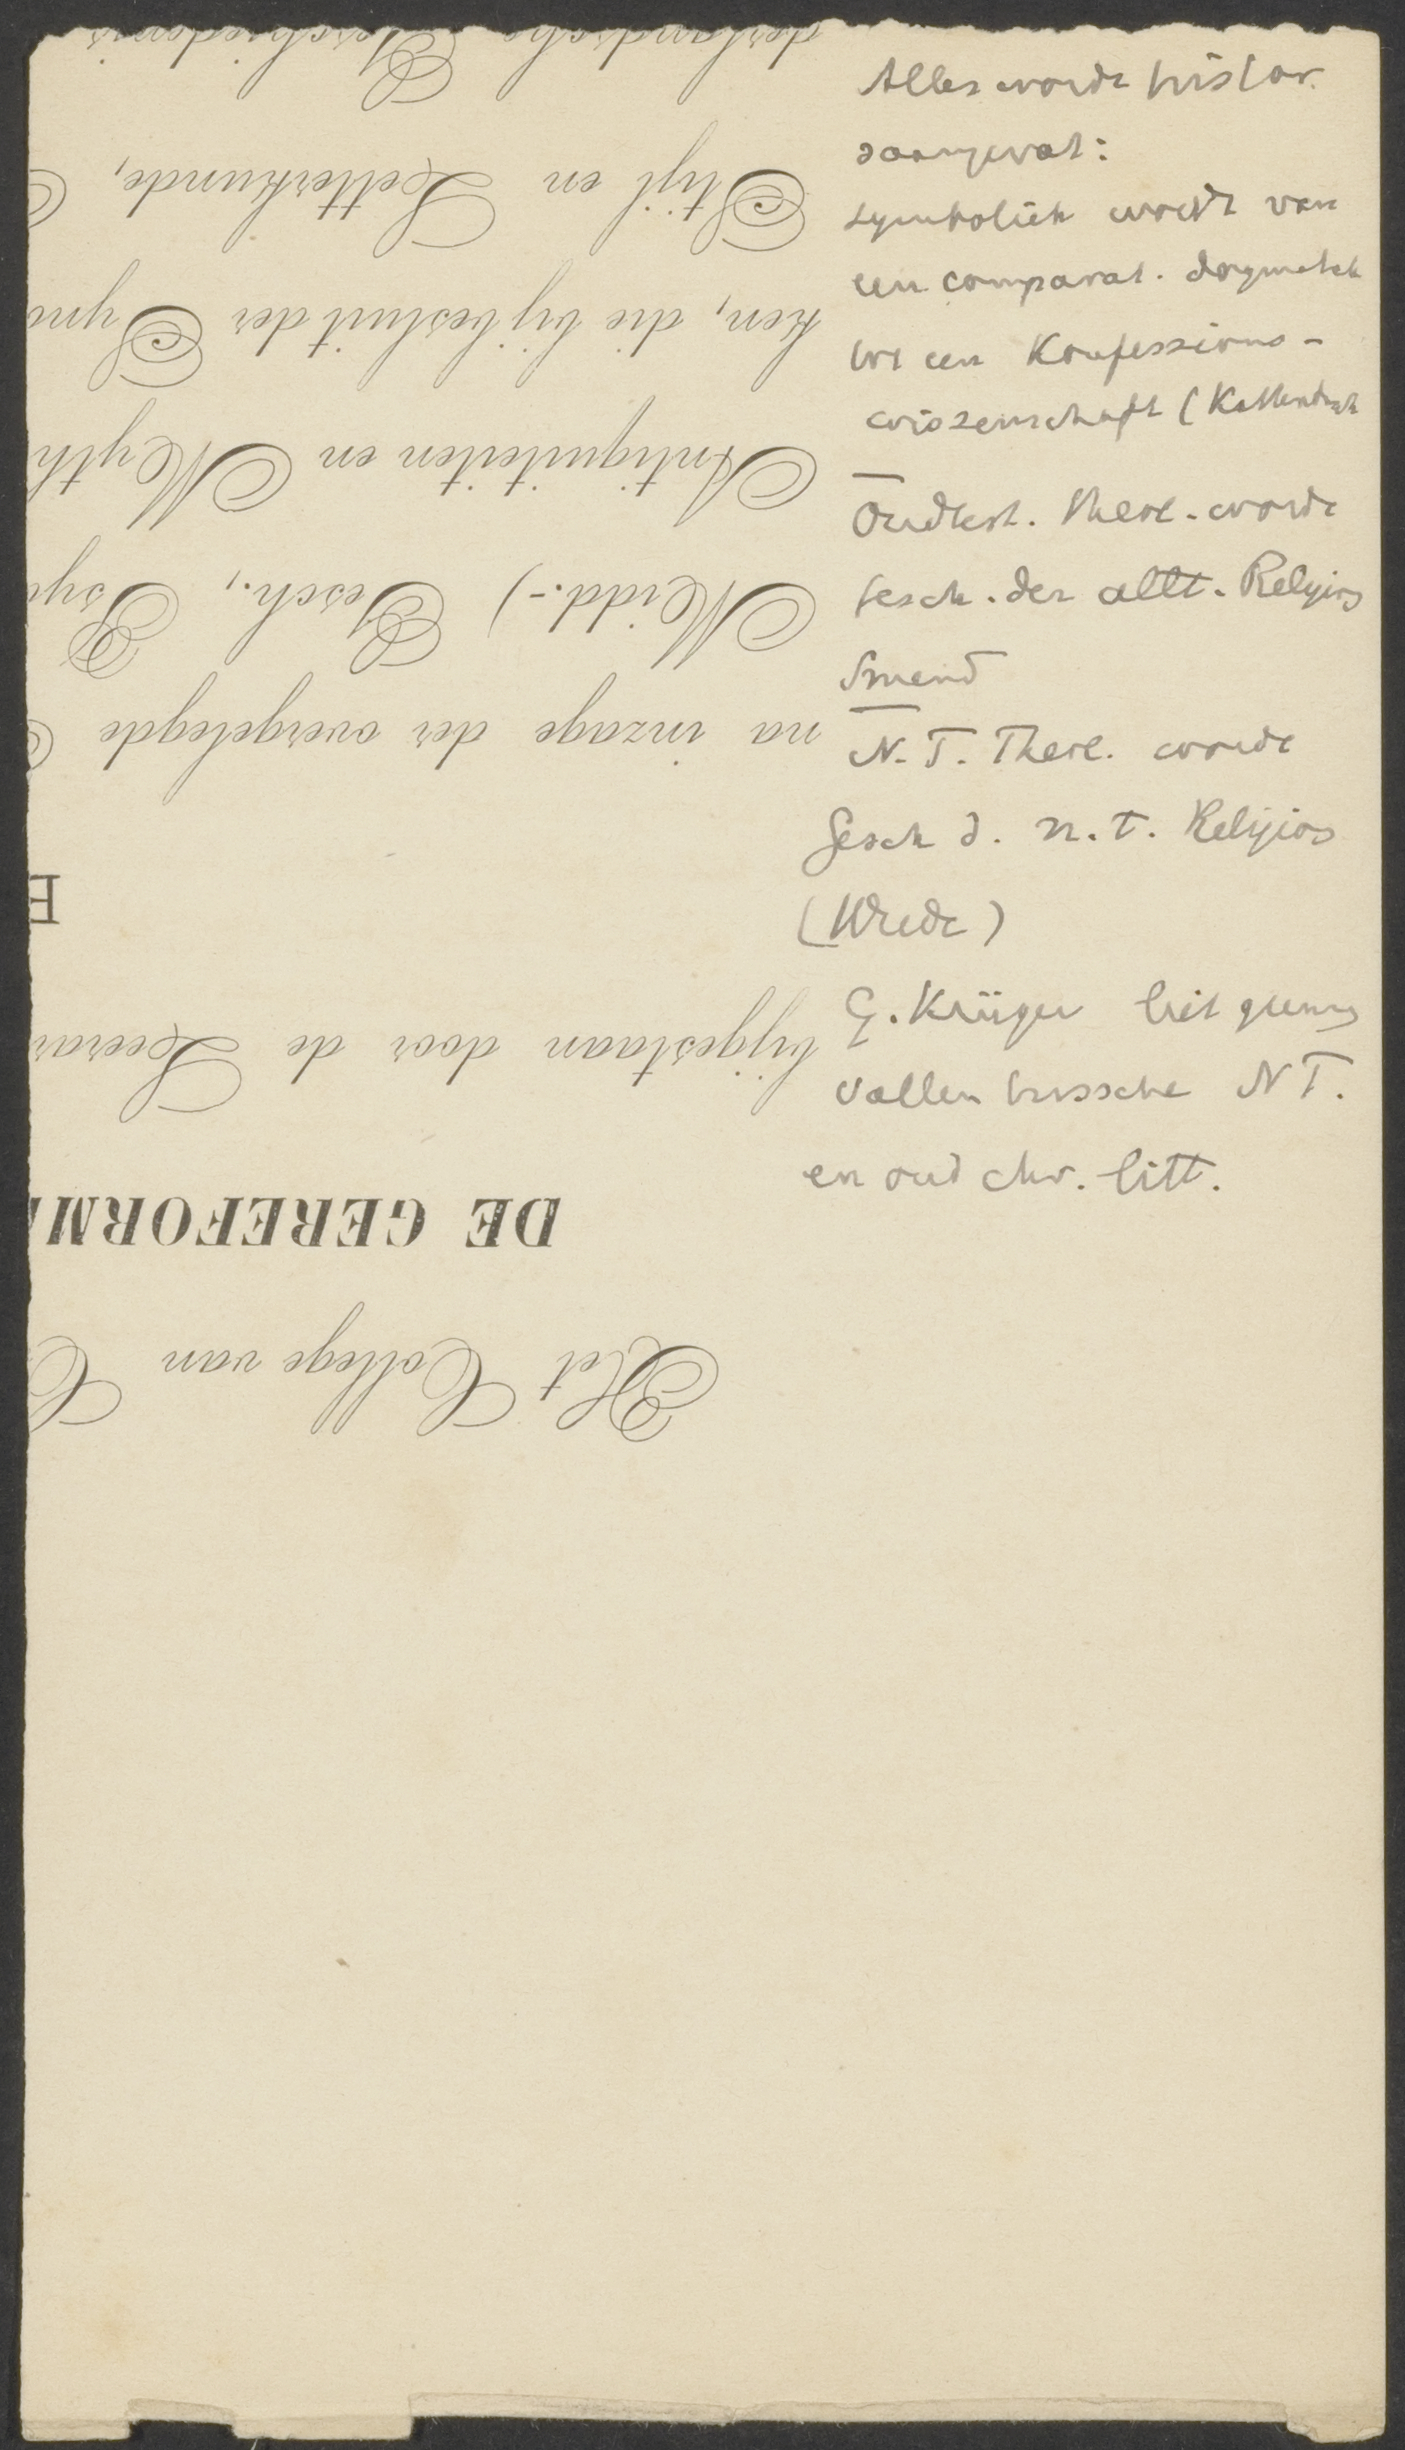 Alles wordt histor.
aangevat:
symboliek wordt van
een comparat. dogmatiek
tot een Konfessions-
wissenschaft (Kattenbusch
Oudtest. Theol. wordt
Gesch. der altt. Religion
Smend
N. T. Theol. wordt
Gesch d. n. t. Religion
(Wrede)
G. Krüger liet grens
vallen tussche NT.
en oud chr. litt.
Het College van C
DE GEREFORM
bijgestaan door de Leerar
E
na inzage der overgelegde
(Midd.-) Gesch., Psy
Antiquiteiten en Myth
ken, die bij besluit der Syno
Stijl en Letterkunde,
derlandsche Geschiedenis